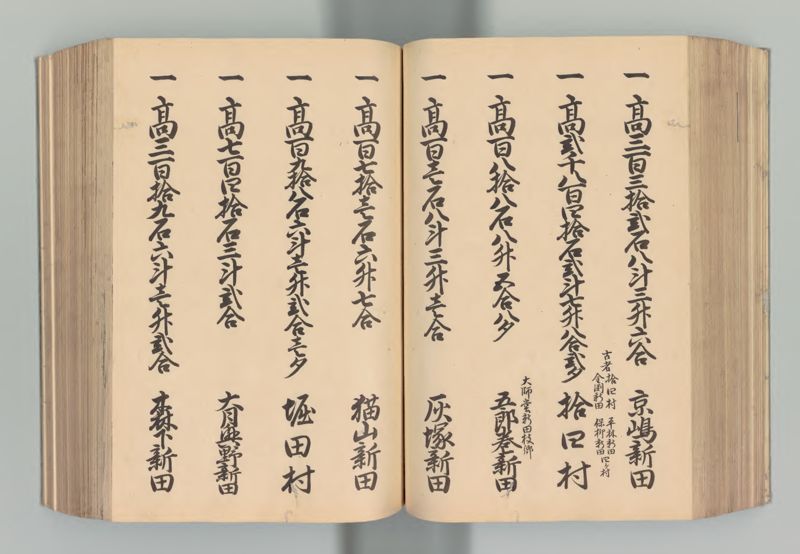 一 高三百三拾弐石八斗三升六合 京嶋新田
古者拾口村 平林新田
金渕新田 保柳新田 四ヶ村
一 高弐千八百四拾石弐斗七升八合弐夕 拾口村
大師堂新田枝郷
一 高百八拾八石八升五合八夕 五郎巻新田
一 高百壱石八斗三升壱合 灰塚新田
一 高百七拾壱石六升七合 猫山新田
一 高百九拾八石六斗壱升弐合壱夕 堀田村
一 高七百四拾石三斗弐合 大月興野新田
一 高三百拾九石六斗壱升弐合 森下新田